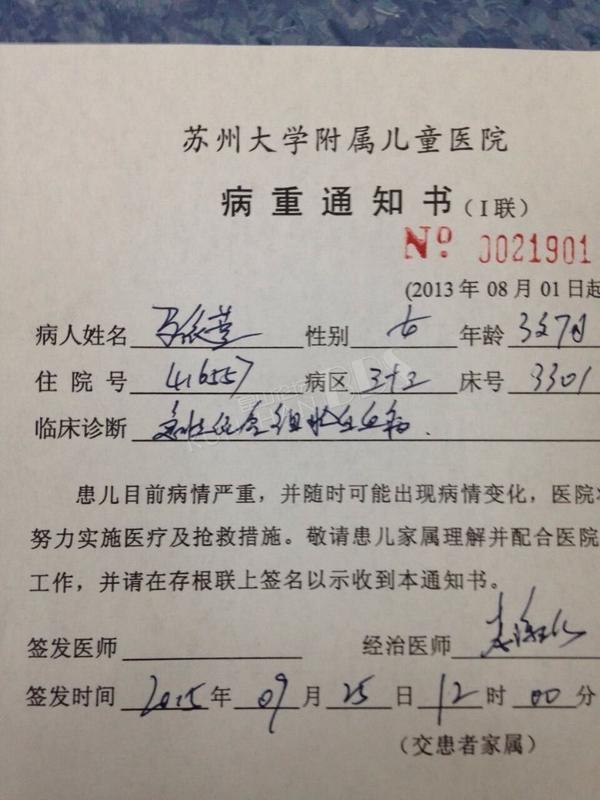 苏州大学附属儿童医院
病重通知书(I联)
Nº 0021901
(2013年08月01日起
病人姓名 性别 女 年龄 3岁7月
住院号 416557 病区 3+2 床号 3301
临床诊断 急性 白血病.
患儿目前病情严重，并随时可能出现病情变化，医院
努力实施医疗及抢救措施。敬请患儿家属理解并配合医院
工作，并请在存根联上签名以示收到本通知书。
签发医师 经治医师
签发时间 2015年09月25日12时00分
(交患者家属)